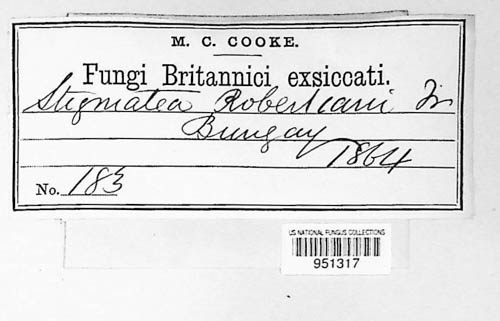 M. C. COOKE.
Fungi Britannici exsiccati.
Stigmatea Robertiani Fr
Bungay
1864
No. 183
US NATIONAL FUNGUS COLLECTIONS
951317